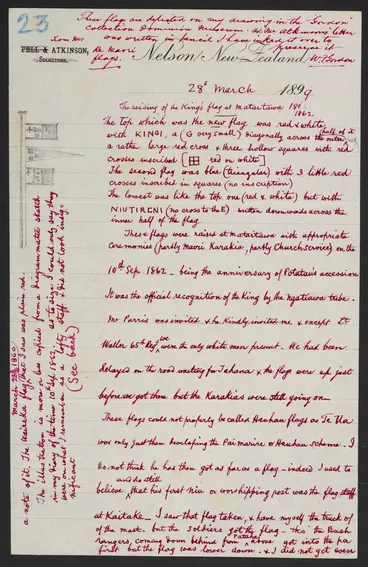 23
These flags are depicted on my drawing in the Gordon
Collection Dominion Museum. as Mr Atkinsons' letter
was written in pencil I have inked it in to
preserve it
W. Gordon
from Mr
re Maori
flags.
FELL & ATKINSON,
SOLICITORS.
Nelson New Zealand,
28th March 1899
The raising of the King's flag at Mataitawa
1862
The top which was the new flag was red & white,
with KINGI, a (G very small) Diagonally across the outer half of it
a rather large red cross & three hollow squares with red
crosses inscribed [ red on white]
The second flag was blue (triangular) with 3 little red
crosses inscribed in squares (no inscription)
The lowest was like the top one (red & white) but with
NIUTIRENI (no cross to the E) written downwards across the
inner half of the flag
These flags were raised at Mataitawa with appropriate
Ceremonies (partly maori Karakia, partly Church service) on the
10th Sep 1862 - being the anniversary of Potatau's accession
It was the official recognition of the King by the Ngatiawa tribe.
Mr Parris was invited & he kindly invited me & except Lt
Waller 65th Regt we were the only white men present. We had been
delayed on the road waiting for Tahana & the flags were up just
before we got there but the Karakias were still going on
These flags could not properly be called Hauhau flags as Te Ua
was only just then developing the Pai marire or Hauhau scheme. I
do not think he has then got as far as a flag - indeed I used to
and do still
believe that his first Niu or worshipping post was the flag staff
at Kaitake - I saw that flag taken, & have myself the truck of
of the mast. but the soldiers got the flag - tis the Bush
rangers, coming down behind from Patuha above got into the pa
first but the flag was lower down. & I did not get even
March 28th 1860
a note of it. The Waireka flag that I saw was plain red.
The illustration is more or less copied from a diagrammatic sketch
in my diary of the time 10 Sep 1862, as to size I could only say they
were on what I remember as a lofty staff & did not look insig-
nificant (See back)